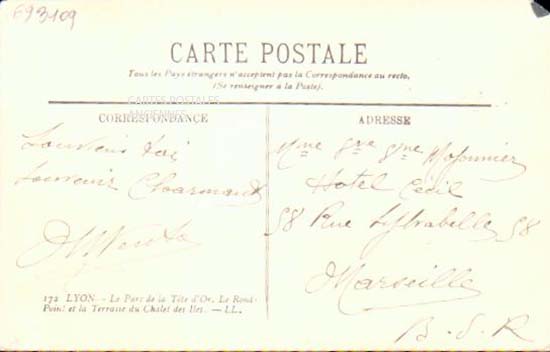 693109
CARTE POSTALE
Tous les Pays étrangers n'acceptent pas la Correspondance au recto.
(Se renseigner à la Poste).
CARTES POSTALES
ANCIENNES
CORRESPONDANCE
Souvenir Charmant
172 LYON - Le Parc de la Tête d'Or. Le Rond-
Point et la Terrasse du Chalet des Iles. - LL.
ADRESSE
Hotel Cécil
58 Rue 58
Marseille
B. d. R